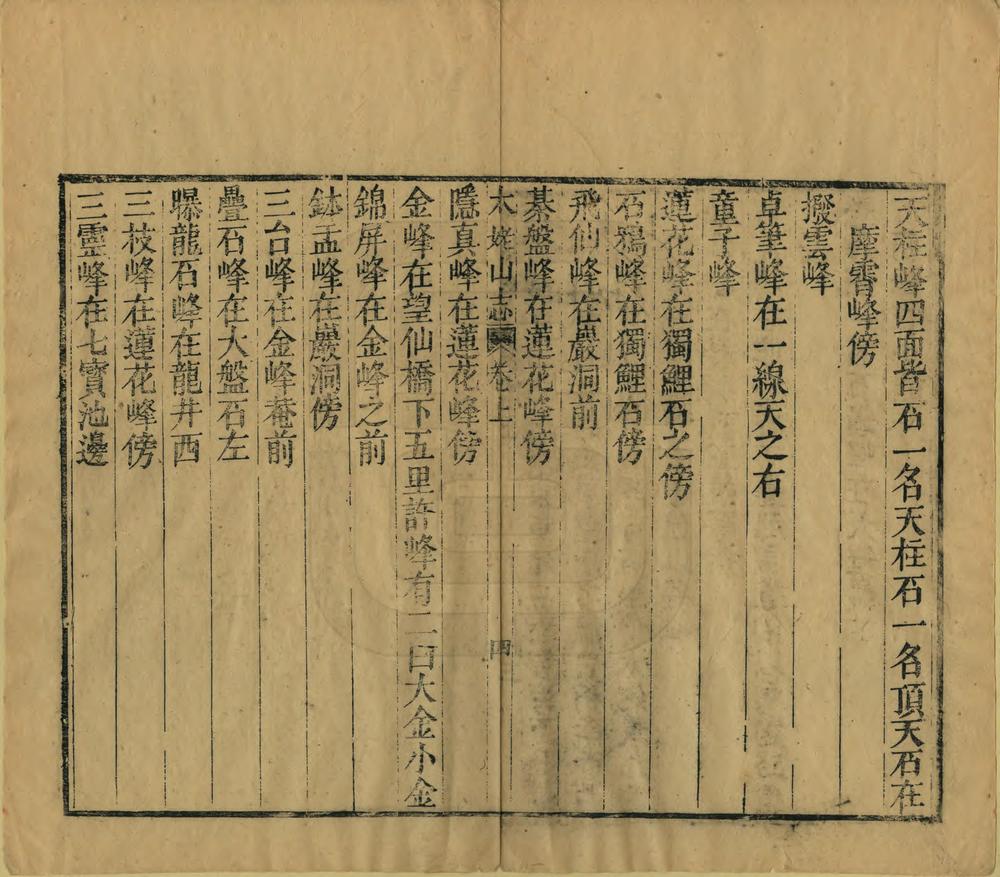 天柱峰四面皆石一名天柱石一名頂天石在
摩霄峰傍
撥雲峰
卓筆峰在一線天之右
童子峰
蓮花峰在獨鯉石之傍
石鴉峰在獨鯉石傍
飛仙峰在巖洞前
棊盤峰在蓮花峰傍
太姥山志 卷上 四
隱真峰在蓮花峰傍
金峰在望仙橋下五里許峰有二曰大金小金
錦屏峰在金峰之前
鉢盂峰在巖洞傍
三台峰在金峰菴前
疊石峰在大盤石左
曝龍石峰在龍井西
三枝峰在蓮花峰傍
三靈峰在七寶池邊